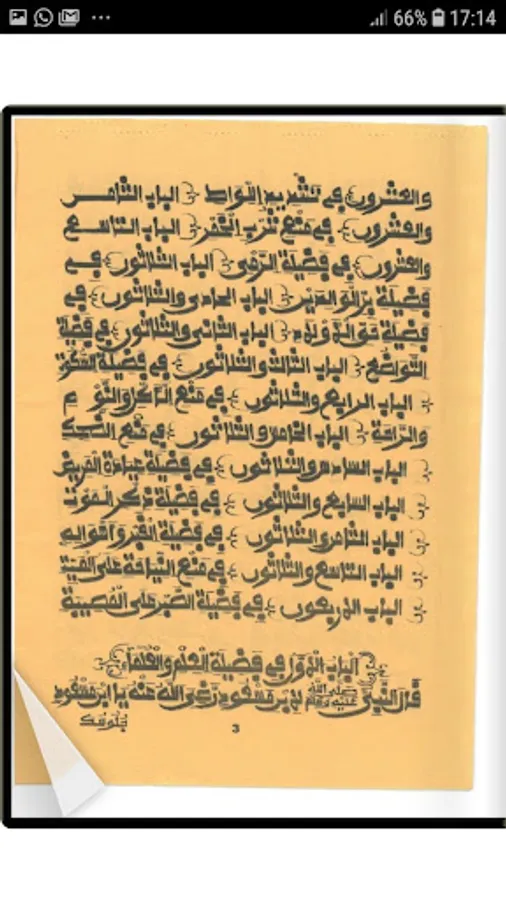 66% 17:14
والعشرون في تشديد اللواط الباب الثامن
والعشرون في منع شرب الخمر الباب التاسع
والعشرون في فضيلة الرمي الباب الثلاثون في
فضيلة بر الوالدين الباب الحادي والثلاثون في
الباب الثاني والثلاثون في فضيلة
التواضع الباب الثالث والثلاثون في فضيلة
الباب الرابع والثلاثون في منع الأكل والنوم
والراحة الباب الخامس والثلاثون في منع الضحك
الباب السادس والثلاثون في فضيلة عيادة المريض
الباب السابع والثلاثون في فضيلة ذكر الموت
الباب الثامن والثلاثون في فضيلة القبر وأهواله
الباب التاسع والثلاثون في منع النياحة على الميت
الباب الأربعون في فضيلة الصبر على المصيبة
الباب الأول في فضيلة العلم والعلماء
قال النبي صلى الله عليه وسلم لابن مسعود رضي الله عنه يا ابن مسعود
جلوسك
3